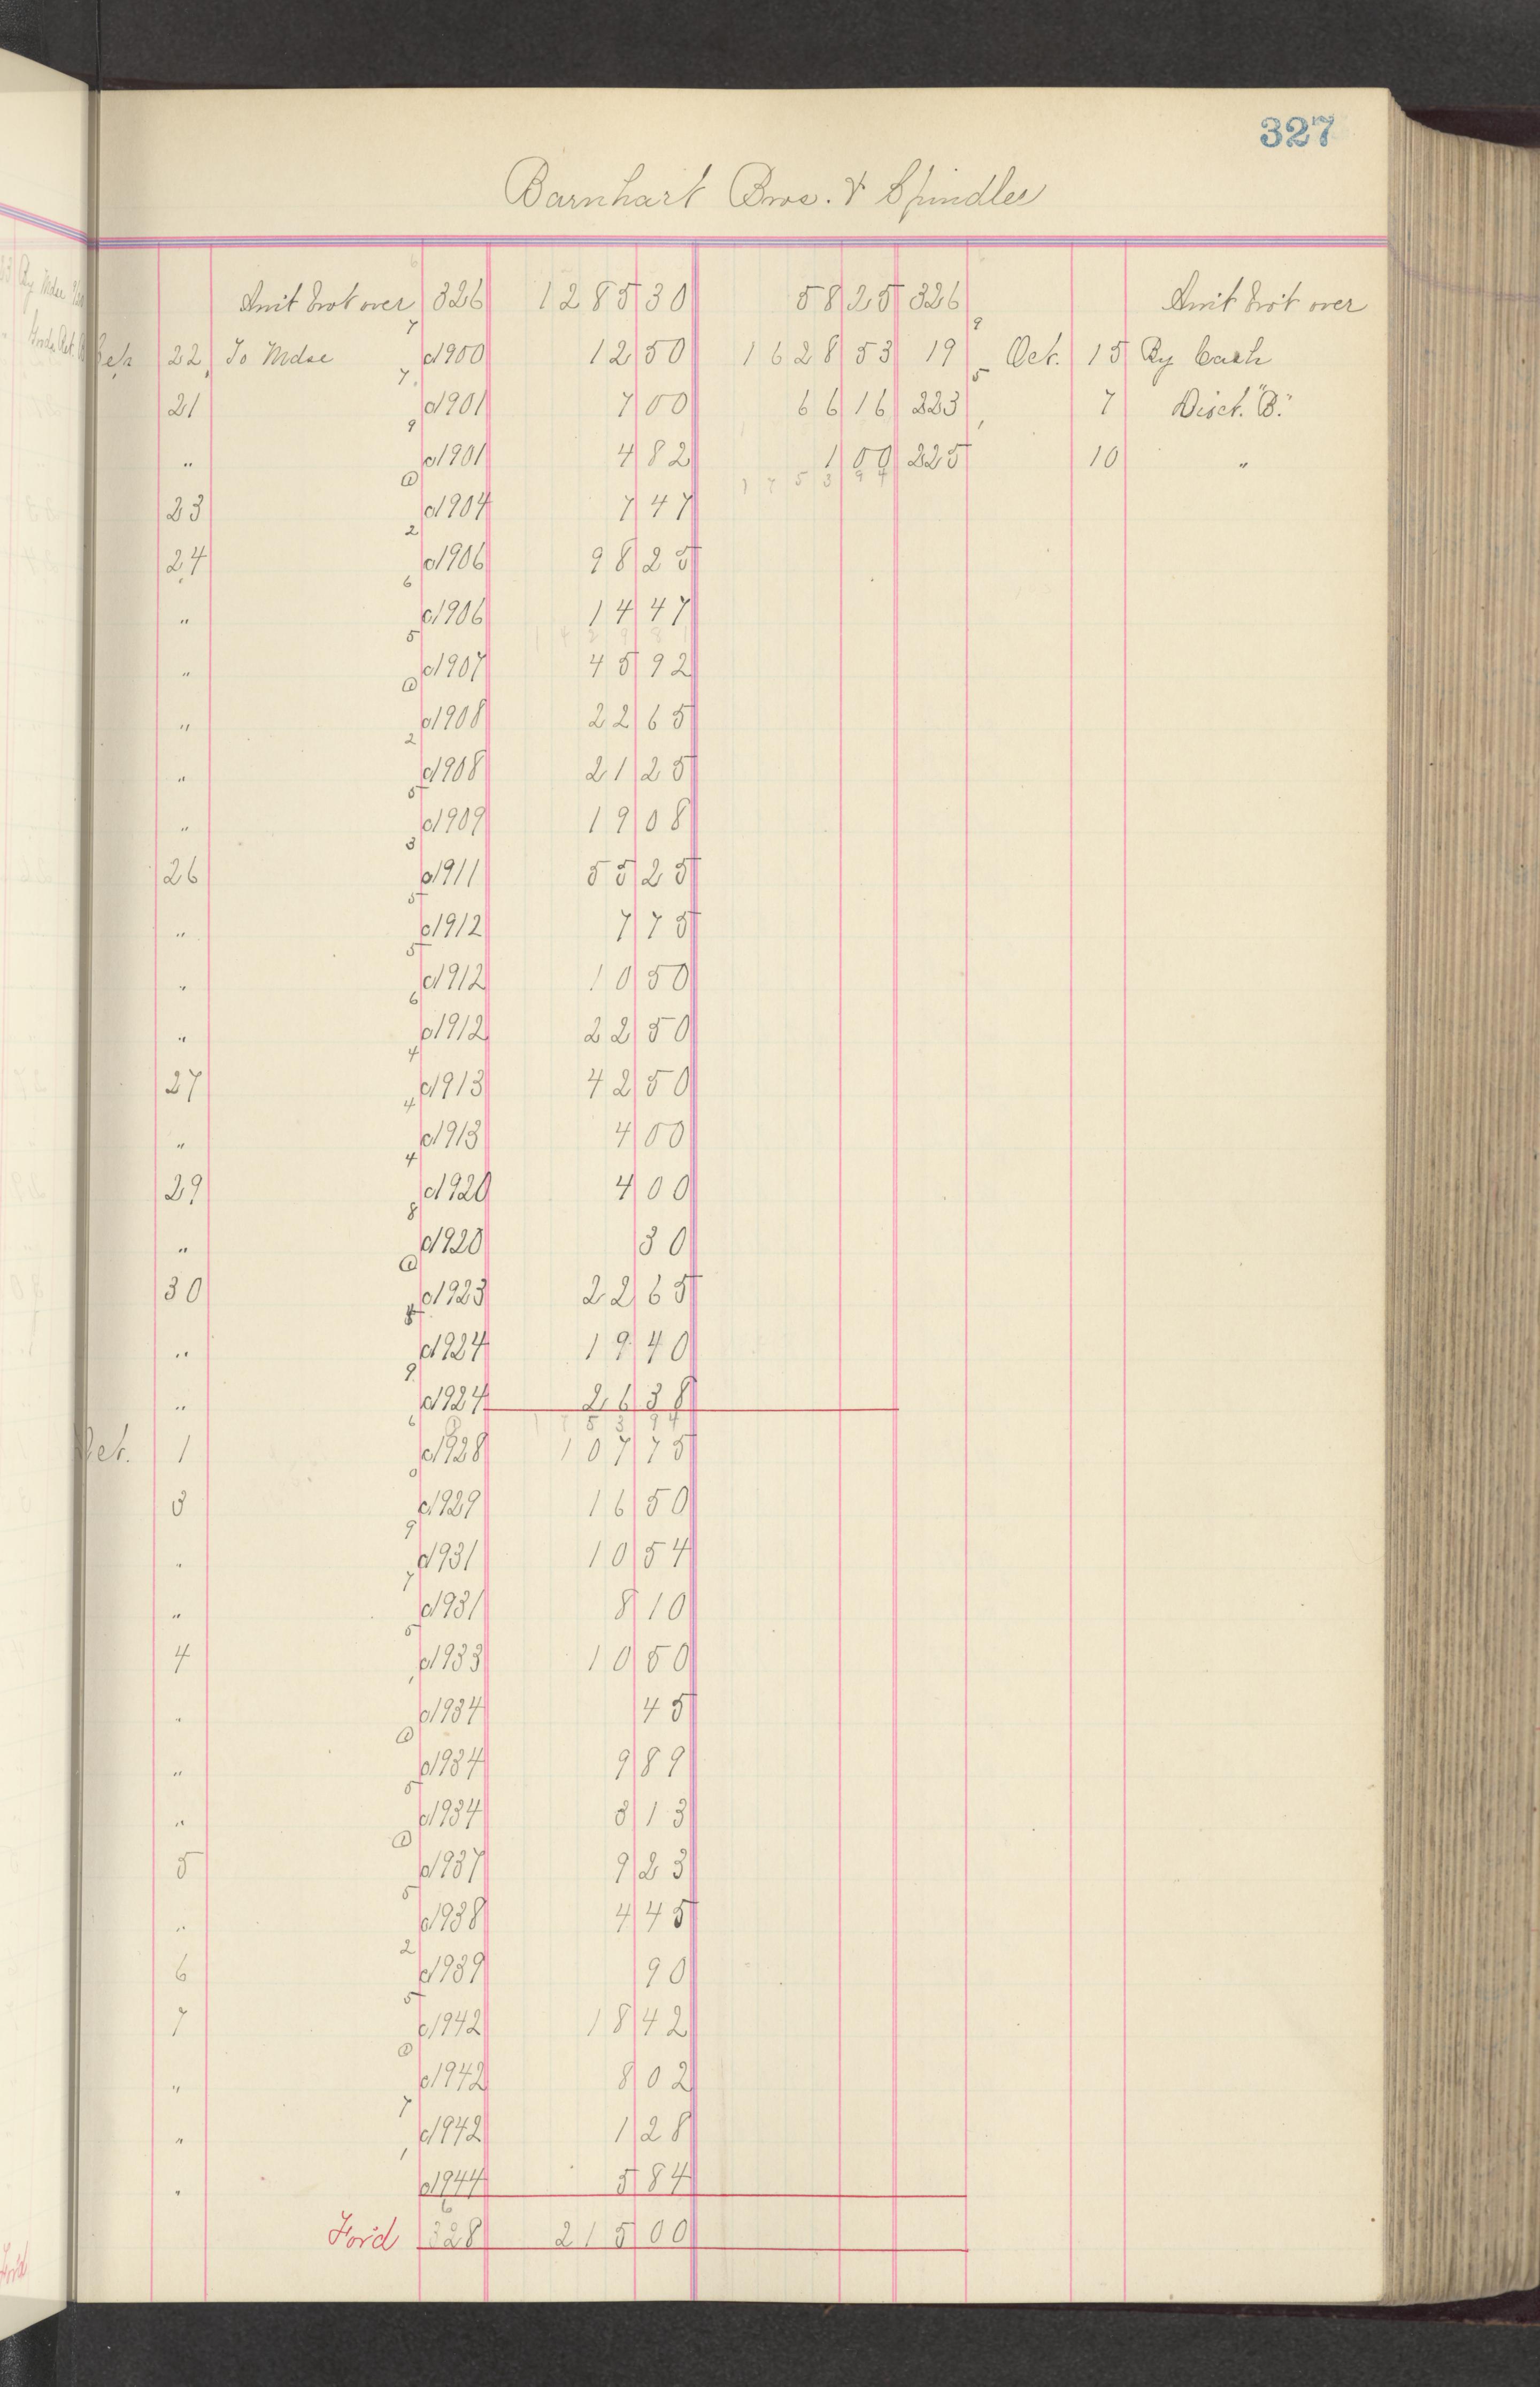 327
Barnhart Bros. & Spindler
Amt brot over 326 1285 30 58 25 326 Amt brot over
Sep 22 To Mdse 1900 12 50 1628 53 19 Oct. 15 By Cash
21 1901 7 00 66 16 223 7 Disct. "B."
" 1901 4 82 1 00 225 10 "
1753 94
23 1904 7 47
24 1906 98 25
" 1906 14 47
" 1907 45 92
" 1908 22 65
" 1908 21 25
" 1909 19 08
26 1911 55 25
" 1912 7 75
" 1912 10 50
" 1912 22 50
27 1913 42 50
" 1913 4 00
29 1920 4 00
" 1920 30
30 1923 22 65
" 1924 19 40
" 1924 26 38
1753 94
Oct. 1 1928 107 75
3 1929 16 50
" 1931 10 54
" 1931 8 10
4 1933 10 50
" 1934 45
" 1934 9 89
" 1934 3 13
5 1937 9 23
" 1938 4 45
6 1939 90
7 1942 18 42
" 1942 8 02
" 1942 1 28
" 1944 5 84
For'd 328 215 00